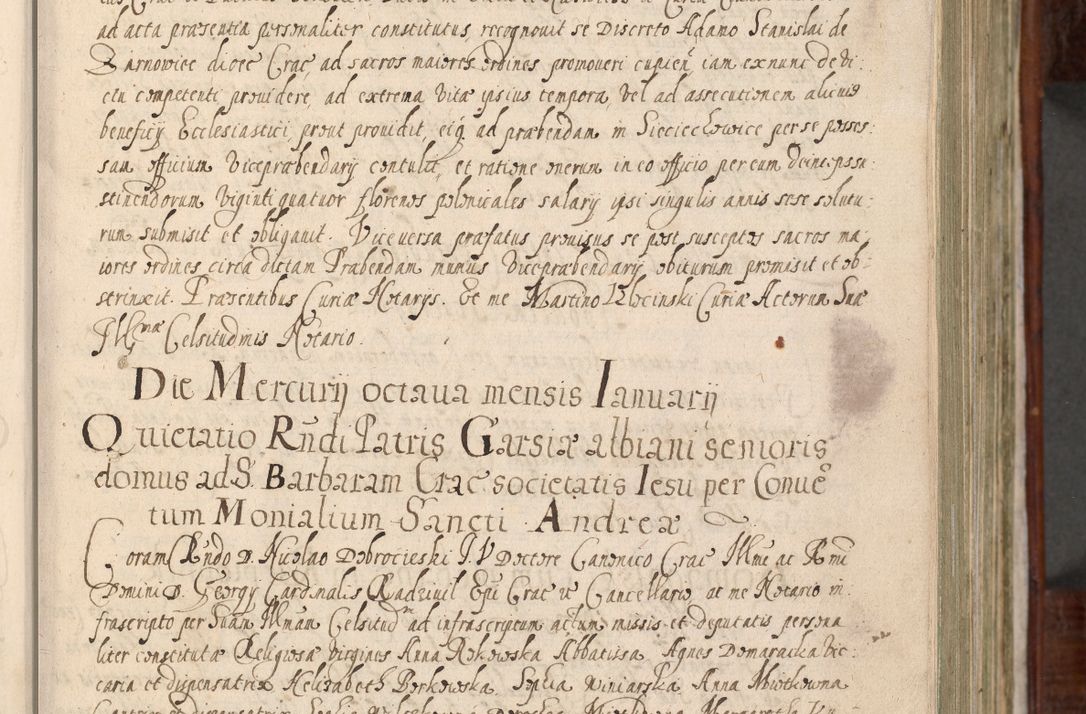 ad acta præsentia personaliter constitutus, recognouit se Discreto Adamo Stanislai de
Zarnowiec dioec Crac, ad sacros maiores ordines promoueri cupien, iam ex nunc de vi
ctu competenti prouidere, ad extrema vitæ ipsius tempora, vel ad assecutionem alicuius
beneficij Ecclesiastici, prout prouidit, eiq. ad præbendam in Sieciechowice per se posses
sam officium Viceprebendarij contulit, et ratione onerum in eo officio per eum deinceps su
stinendorum viginti quatuor florenos polonicales salarij ipsi singulis annis sese solutu
rum submisit et obligauit. Vice versa præfatus prouisus se post susceptos sacros ma
iores ordines circa dictam Præbendam munus Viceprebendarij obiturum promisit et ob
strinxit. Præsentibus Curiæ Notarys. Et me Martino Izlocinski Curiæ Actorum Suæ
Illmæ Celsitudinis Notario.
Die Mercurij octaua mensis Ianuarij
Quietatio Rndi Patris Garsiæ albiani senioris
domus ad S. Barbaram Crac societatis Iesu per Conue
tum Monialium Sancti Andreæ
Coram Rndo D. Nicolao Dobrocieski I. V Doctore Canonico Crac Illme ac Rmi
Domini D. Georgij Cardinalis Radziuil Epi Crac ut Cancellario ac me Notario in
frascripto per Suam Illmam Celsitudnem ad infrascriptum actum missis et deputatis persona
liter constitutæ Religiosæ virgines Anna Rokowska Abbatissa Agnes Domaracka Vic
caria et dispensatrix Helisabeth Borkowska Sophia Winiarska Anna